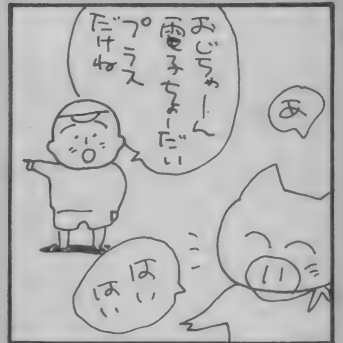 あ
おじちゃーん
電子ちょーだい
プラス
だけね
はい
はい